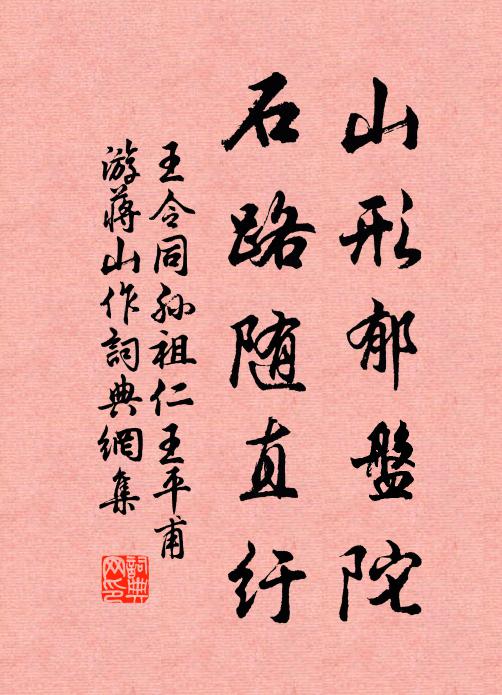 山形郁盤陀
石路随直纡
王令同孙祖仁王平甫
游蒋山作詞典網集
詞典
网印